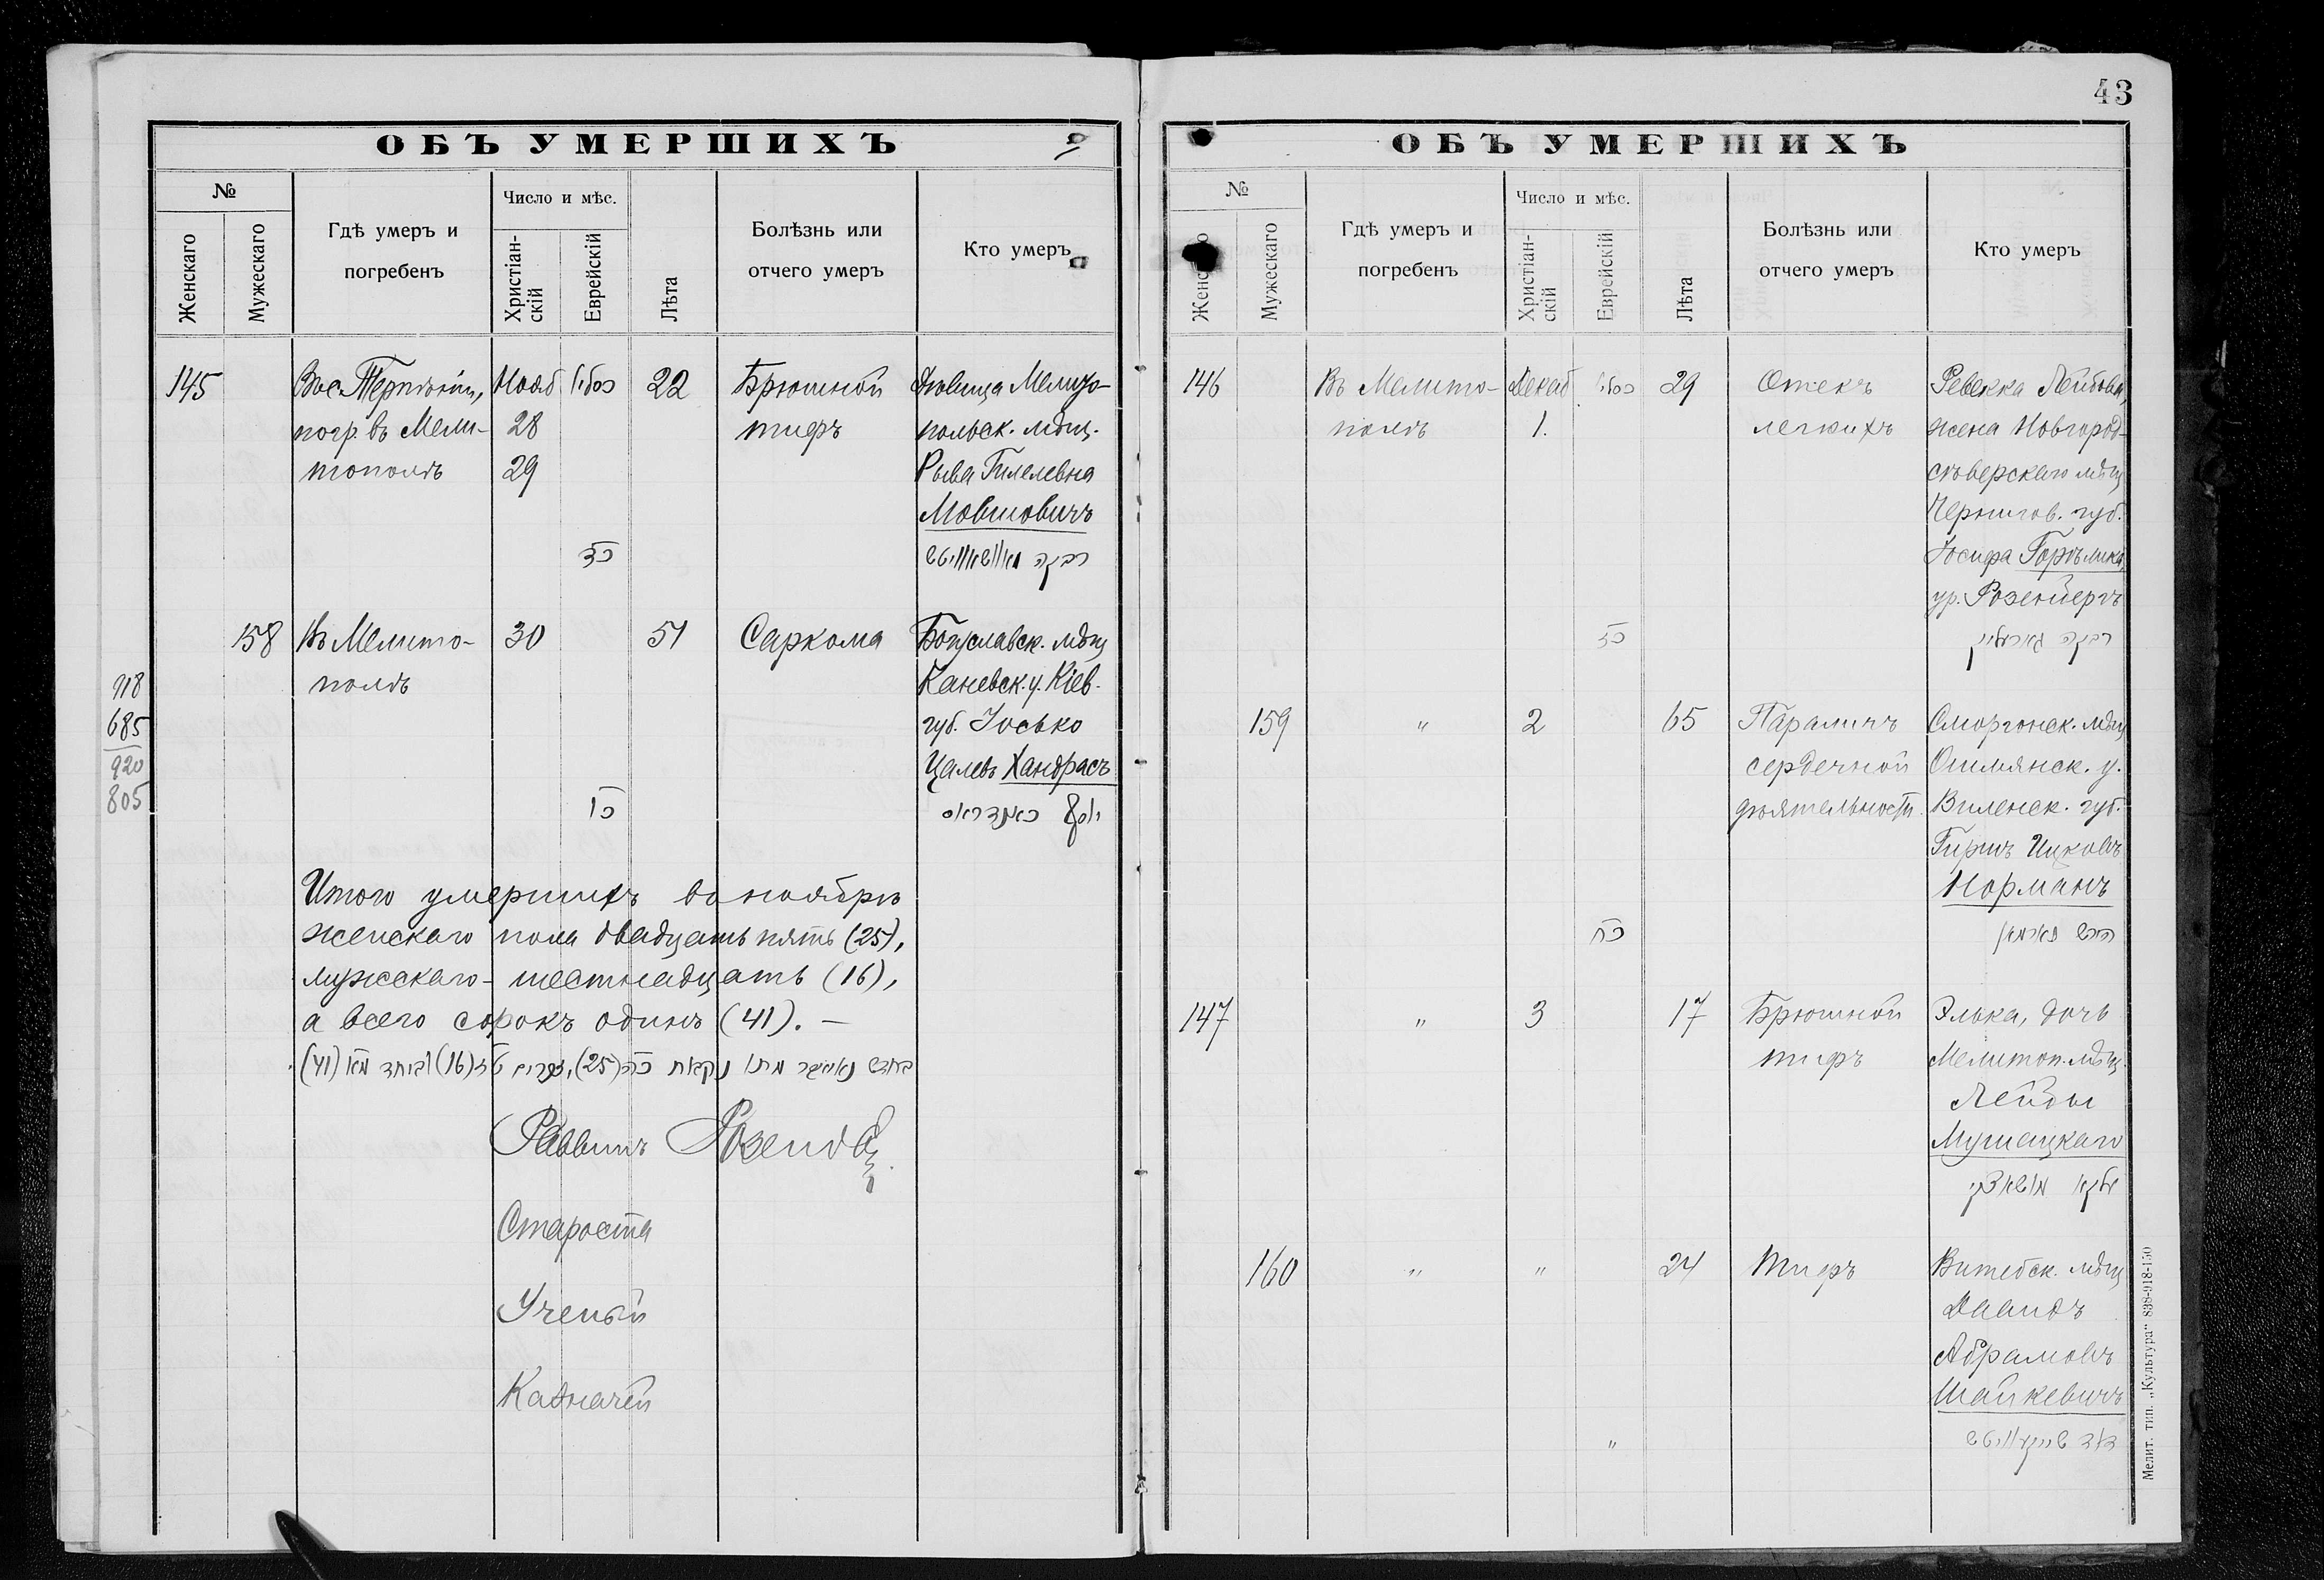 43
ОБЪ УМЕРШИХЪ
№
Женскаго
Мужескаго
Гдѣ умеръ и
погребенъ
Число и мѣс.
Христіан-
скій
Еврейскій
Лѣта
Болѣзнь или
отчего умеръ
Кто умеръ
145
Вос. Терпѣнія,
погр. въ Мели-
тополѣ
Нояб
28
29
22
Брюшной
тифъ
Дѣвица Мелито-
польск. мѣщ.
Рыва Гилелевна
Мовшовичъ
158
Въ Мелито-
полѣ
30
51
Саркома
Богуславск. мѣщ
Каневск. у. Кіев.
губ. Іосько
Цалевъ Хандрасъ
918
685
920
805
Итого умершихъ въ ноябрѣ
женскаго пола двадцать пять (25),
мужскаго - шестнадцать (16),
а всего сорокъ одинъ (41). —
Раввинъ
Староста
Ученый
Казначей
ОБЪ УМЕРШИХЪ
№
Женскаго
Мужескаго
Гдѣ умеръ и
погребенъ
Число и мѣс.
Христіан-
скій
Еврейскій
Лѣта
Болѣзнь или
отчего умеръ
Кто умеръ
146
Въ Мелито-
полѣ
Декаб
1.
29
Отекъ
легкихъ
Ревекка Лейбова,
жена Новгород-
сѣверскаго мѣщ
Чернигов. губ.
Іосифа Горѣлика,
ур.
159
"
2
65
Параличъ
сердечной
дѣятельности.
Сморгонск. мѣщ
Ошмянск. у.
Виленск. губ.
Гиршъ Ицковъ
Норманъ
147
"
3
17
Брюшной
тифъ
Элька, дочь
Мелитоп. мѣщ.
Лейбы
Мушацкаго
160
"
"
24
Тифъ
Витебск. мѣщ
Давидъ
Абрамовъ
Шайкевичъ
"
Мелит. тип. „Культура“ 838-918-150